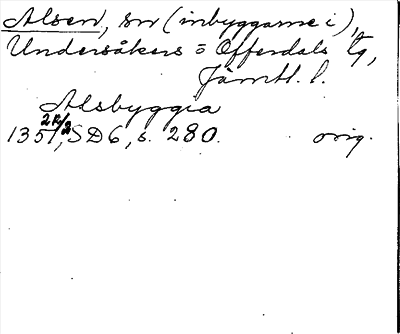 Alsen, sn (inbyggarne i),
Undersåkers o Offerdals tg,
Jämtl. l.
Alsbyggia
1351 2R/2, SD6, s. 280. orig.